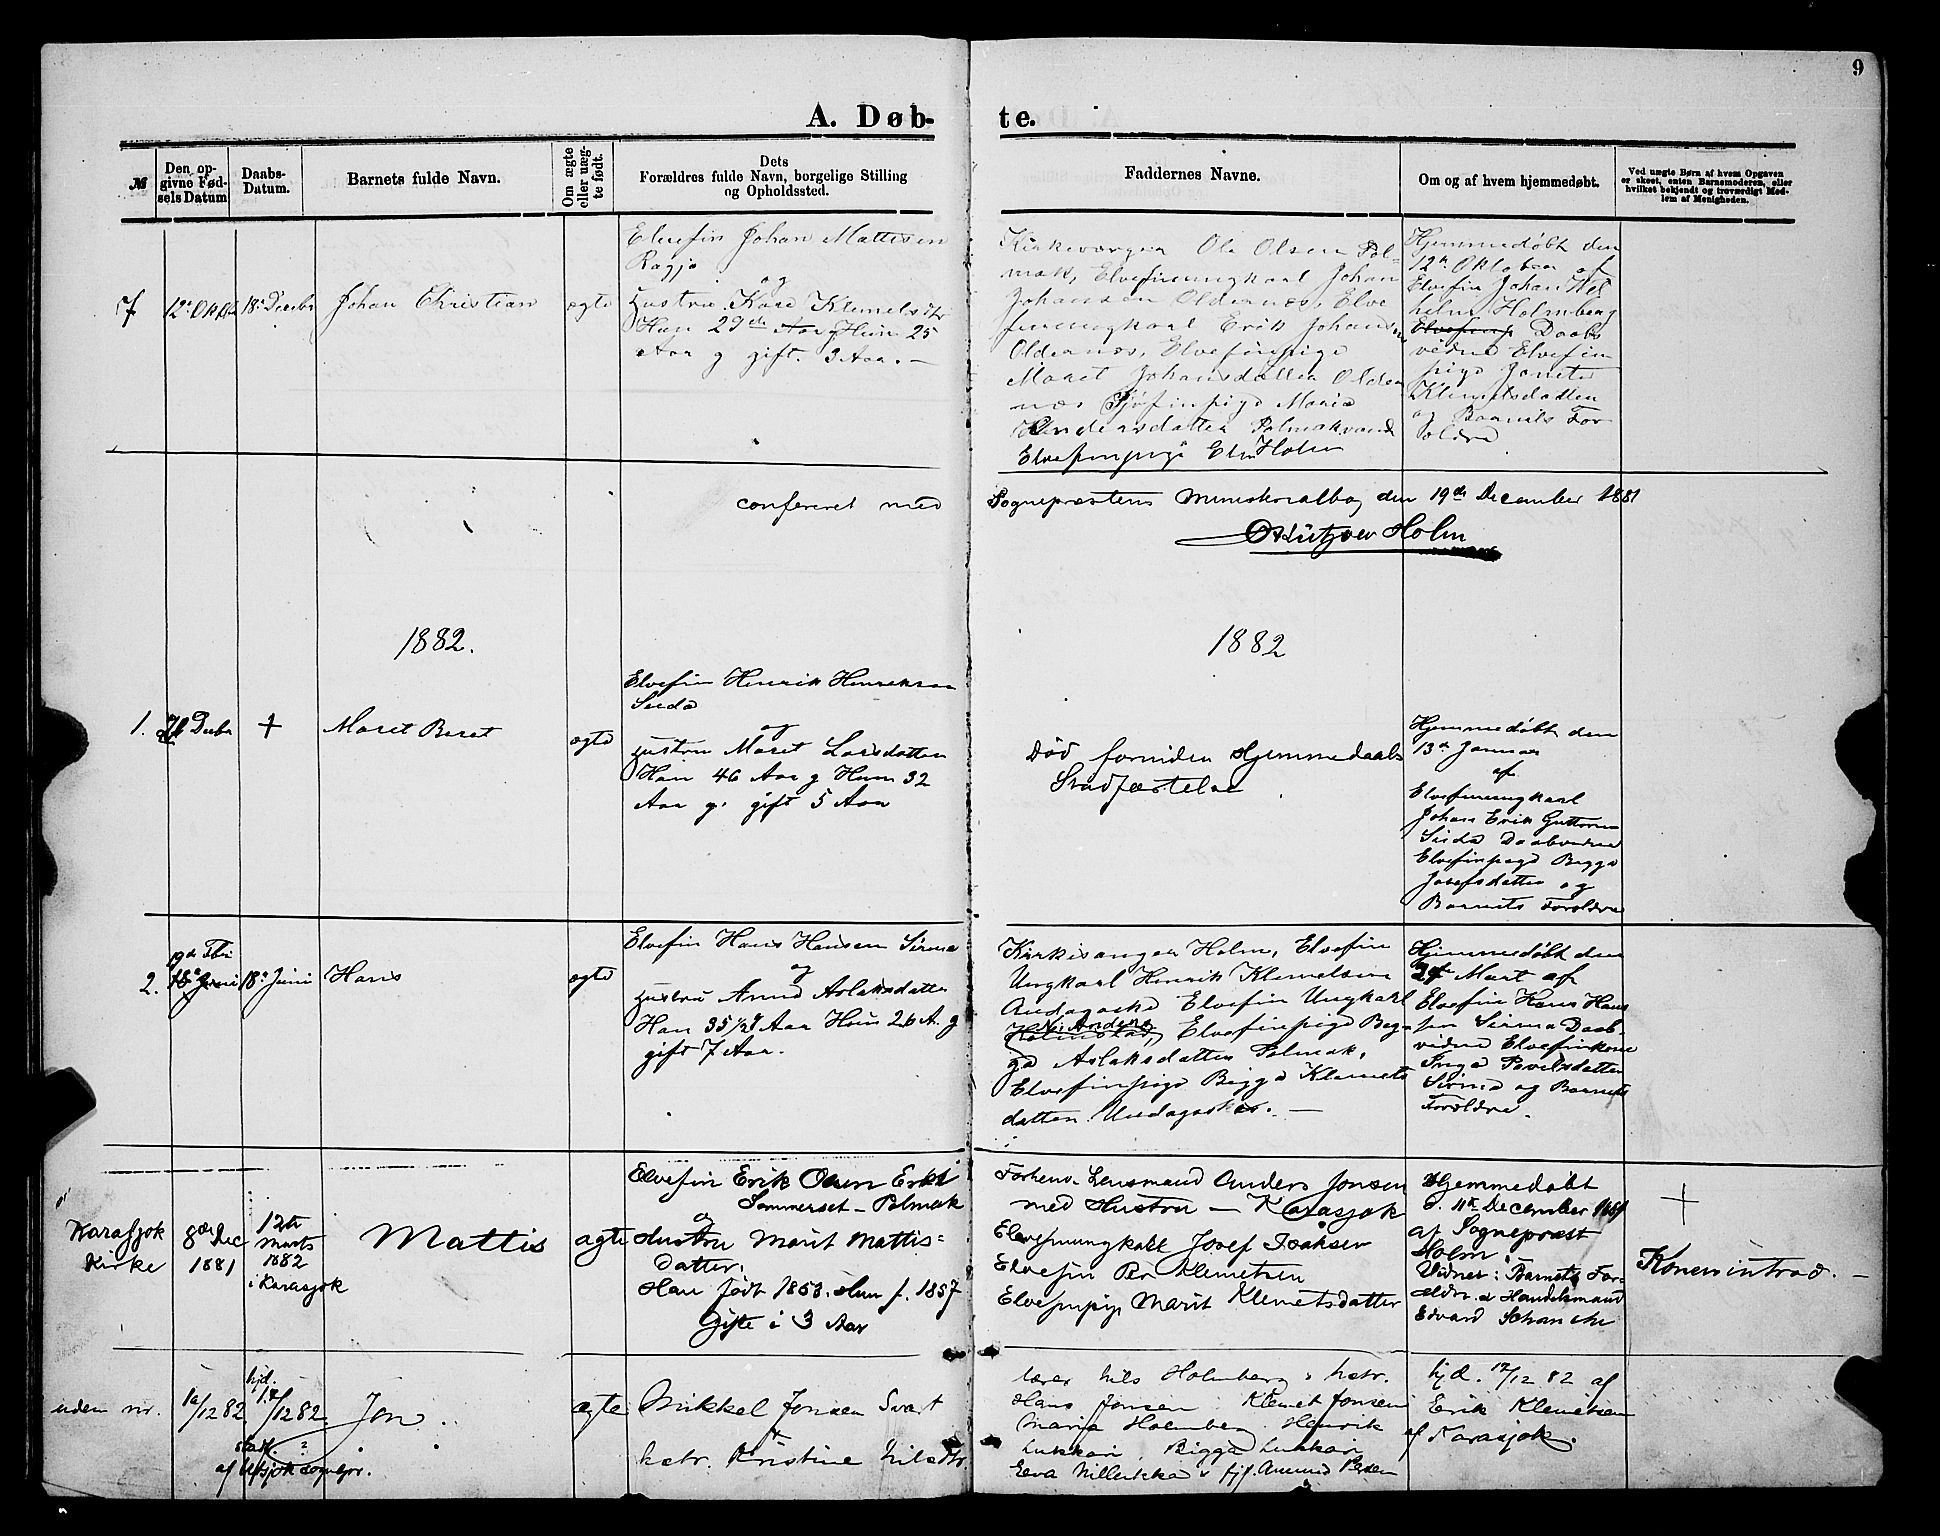 9
A. Døb- te.
№
Den op-
givne Fød-
sels Datum
Daabs-
Datum.
Barnets fulde Navn.
Om ægte
eller uæg-
te født.
Dets
Forældres fulde Navn, borgelige Stilling
og Opholdssted.
Faddernes Navne.
Om og af hvem hjemmedøbt.
Ved uægte Børn af hvem Opgaven
er skeet, enten Barnemoderen, eller
hvilket bekjendt og troværdigt Med-
lem af Menigheden.
7
12te Oktbr
18de Decbr
Johan Christian
ægte
Elvefin Johan Mattisen
Ragjo
og
Hustru Kare Klemetsdtr
Han 29de Aar g Hun 25
Aar g gift. 3 Aar. —
Kirkeværgen Ole Olsen Pol-
mak, Elvefinungkarl Johan
Johansen Oldernes, Elve
finungkarl Erik Johansen
Oldernæs, Elvefinpige
Maret Johansdatter Older
næs Sjøfinpige Maria
Andersdatter Polmakvand
Elvefinpige Elen Holm
Hjemmedøbt den
12te Oktober af
Elvefin Johan Vil
helm Holmberg
Elvefinp Daabs
vidne Elvefin
pige
Klemetsdatter
og Barnets For
ældre
conferert med
Sognepræstens Ministerialbog den 19de December 1881
Holm
1882.
1882
1.
Decbr
+
Maret Beret
ægte
Elvefin Henrik Henriksen
Sieda
og
Hustru Maret Larsdatter
Han 46 Aar g Hun 32
Aar g. gift 5 Aar
Død forinden Hjemmedaabs
Stadfæstelse
Hjemmedøbt den
13de Januar
af
Elvefinungkarl
Johan Erik Guttorm
Sieda Daabvidne
Elvefinpige Bigga
Josefsdatter og
Barnets Forældre
2.
19de Fbr
18de Juni
18de Juni
Hans
ægte
Elvefin Hans Hansen Sirma
og
Hustru Anne Aslaksdatter
Han 35 1/2 Aar Hun 26 A. g
gift 7 Aar.
Kirkesanger Holm, Elvefin
Ungkarl Henrik Klemetsen
Elvefin Ungkarl
N. Anders
Holmestad, Elvefinpige Big-
ga Aslaksdatter Polmak,
Elvefinpige Bigga Klemets
datter —
Hjemmedøbt den
Mart af
Elvefin Hans Han
sen Sirma Daab-
vidne Elvefinkone
Inga Povelsdatter
Sirma og Barnets
Forældre.
Karasjok
Kirke
8de Dec
1881
12te
Marts
1882
i Karasjok
Mattis
ægte
Elvefin Erik Olsen Erke
Sommerset — Polmak
og
Hustru Marit Mattis=
datter.
Han født 1853. Hun f. 1857
Gifte i 3 Aar
Forhenv. Lensmand Anders Jonsen
med Hustru — Karasjok
Elvefinungkarl Josef Isaksen
Elvefin Per Klemetsen
Elvefinpige Marit Klemetsdatter
Hjemmedøbt
d. 11te December 1881
af Sognepræst
Holm
Vidner: Barnets For-
ældre & Handelsmand
Edvard Schanche
+
Konen introd. —
uden nr.
10/12 82
hjd.
17/12 82
stadf. i
af sognepr.
Jon
ægte
Mikkel Jonsen Svart
&
hstr. Kristine Nilsdtr
Lærer Nils Holmberg & hstr.
Hans Jonsen Klemet Jonsen
Maria Holmberg Henrik
Lukkari Bigga Lukkari
Eeva & Amund Persen
hjd. 17/12 82 af
Erik Klemetsen
af Karasjok.